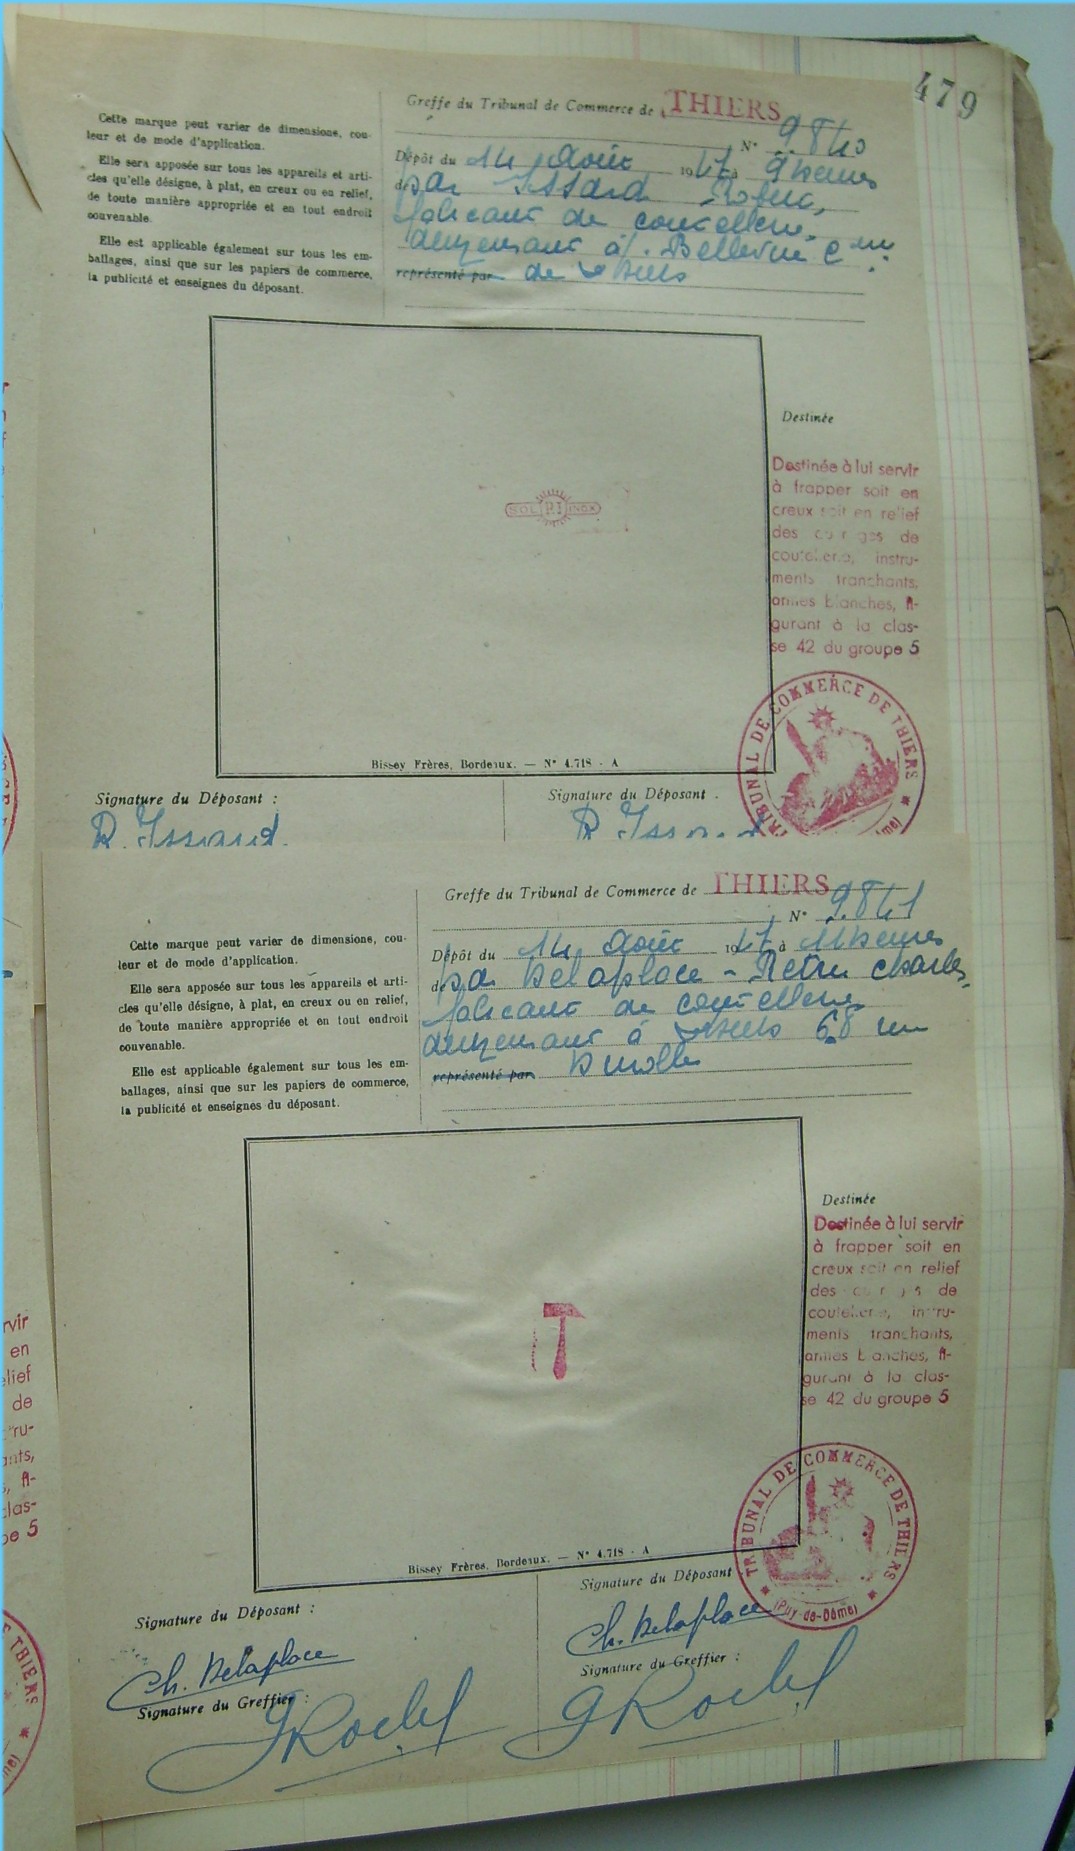 479
Greffe du Tribunal de Commerce de THIERS
N° 9840
Cette marque peut varier de dimensions, cou-
leur et de mode d'application.
Elle sera apposée sur tous les appareils et arti-
cles qu'elle désigne, à plat, en creux ou en relief,
de toute manière appropriée et en tout endroit
convenable.
Elle est applicable également sur tous les em-
ballages, ainsi que sur les papiers de commerce,
la publicité et enseignes du déposant.
Dépôt du 14 Août 1947 à 9 heures
par Issard
fabricant de coutellerie
demeurant à Bellevue Cne
représenté par de Thiers
SOL R.I INOX
Destinée
Destinée à lui servir
à frapper soit en
creux soit en relief
des de
coutellerie, instru-
ments tranchants,
armes blanches, fi-
gurant à la clas-
se 42 du groupe 5
TRIBUNAL DE COMMERCE DE THIERS
Bissey Frères, Bordeaux. — N° 4.718 - A
Signature du Déposant :
Signature du Déposant .
R. Issard.
R. Issard
Greffe du Tribunal de Commerce de THIERS
N° 9841
Cette marque peut varier de dimensions, cou-
leur et de mode d'application.
Elle sera apposée sur tous les appareils et arti-
cles qu'elle désigne, à plat, en creux ou en relief,
de toute manière appropriée et en tout endroit
convenable.
Elle est applicable également sur tous les em-
ballages, ainsi que sur les papiers de commerce,
la publicité et enseignes du déposant.
Dépôt du 14 Août 1947 à 11 heures
par Delaplace - Charles,
fabricant de coutellerie
demeurant à Thiers 68 rue
représenté par Durolle
Destinée
Destinée à lui servir
à frapper soit en
creux soit en relief
des de
coutellerie, instru-
ments tranchants,
armes blanches, fi-
gurant à la clas-
se 42 du groupe 5
TRIBUNAL DE COMMERCE DE THIERS
(Puy-de-Dôme)
Bissey Frères, Bordeaux. — N° 4.718 - A
Signature du Déposant :
Signature du Déposant
Ch. Delaplace
Ch. Delaplace
Signature du Greffier :
Signature du Greffier :